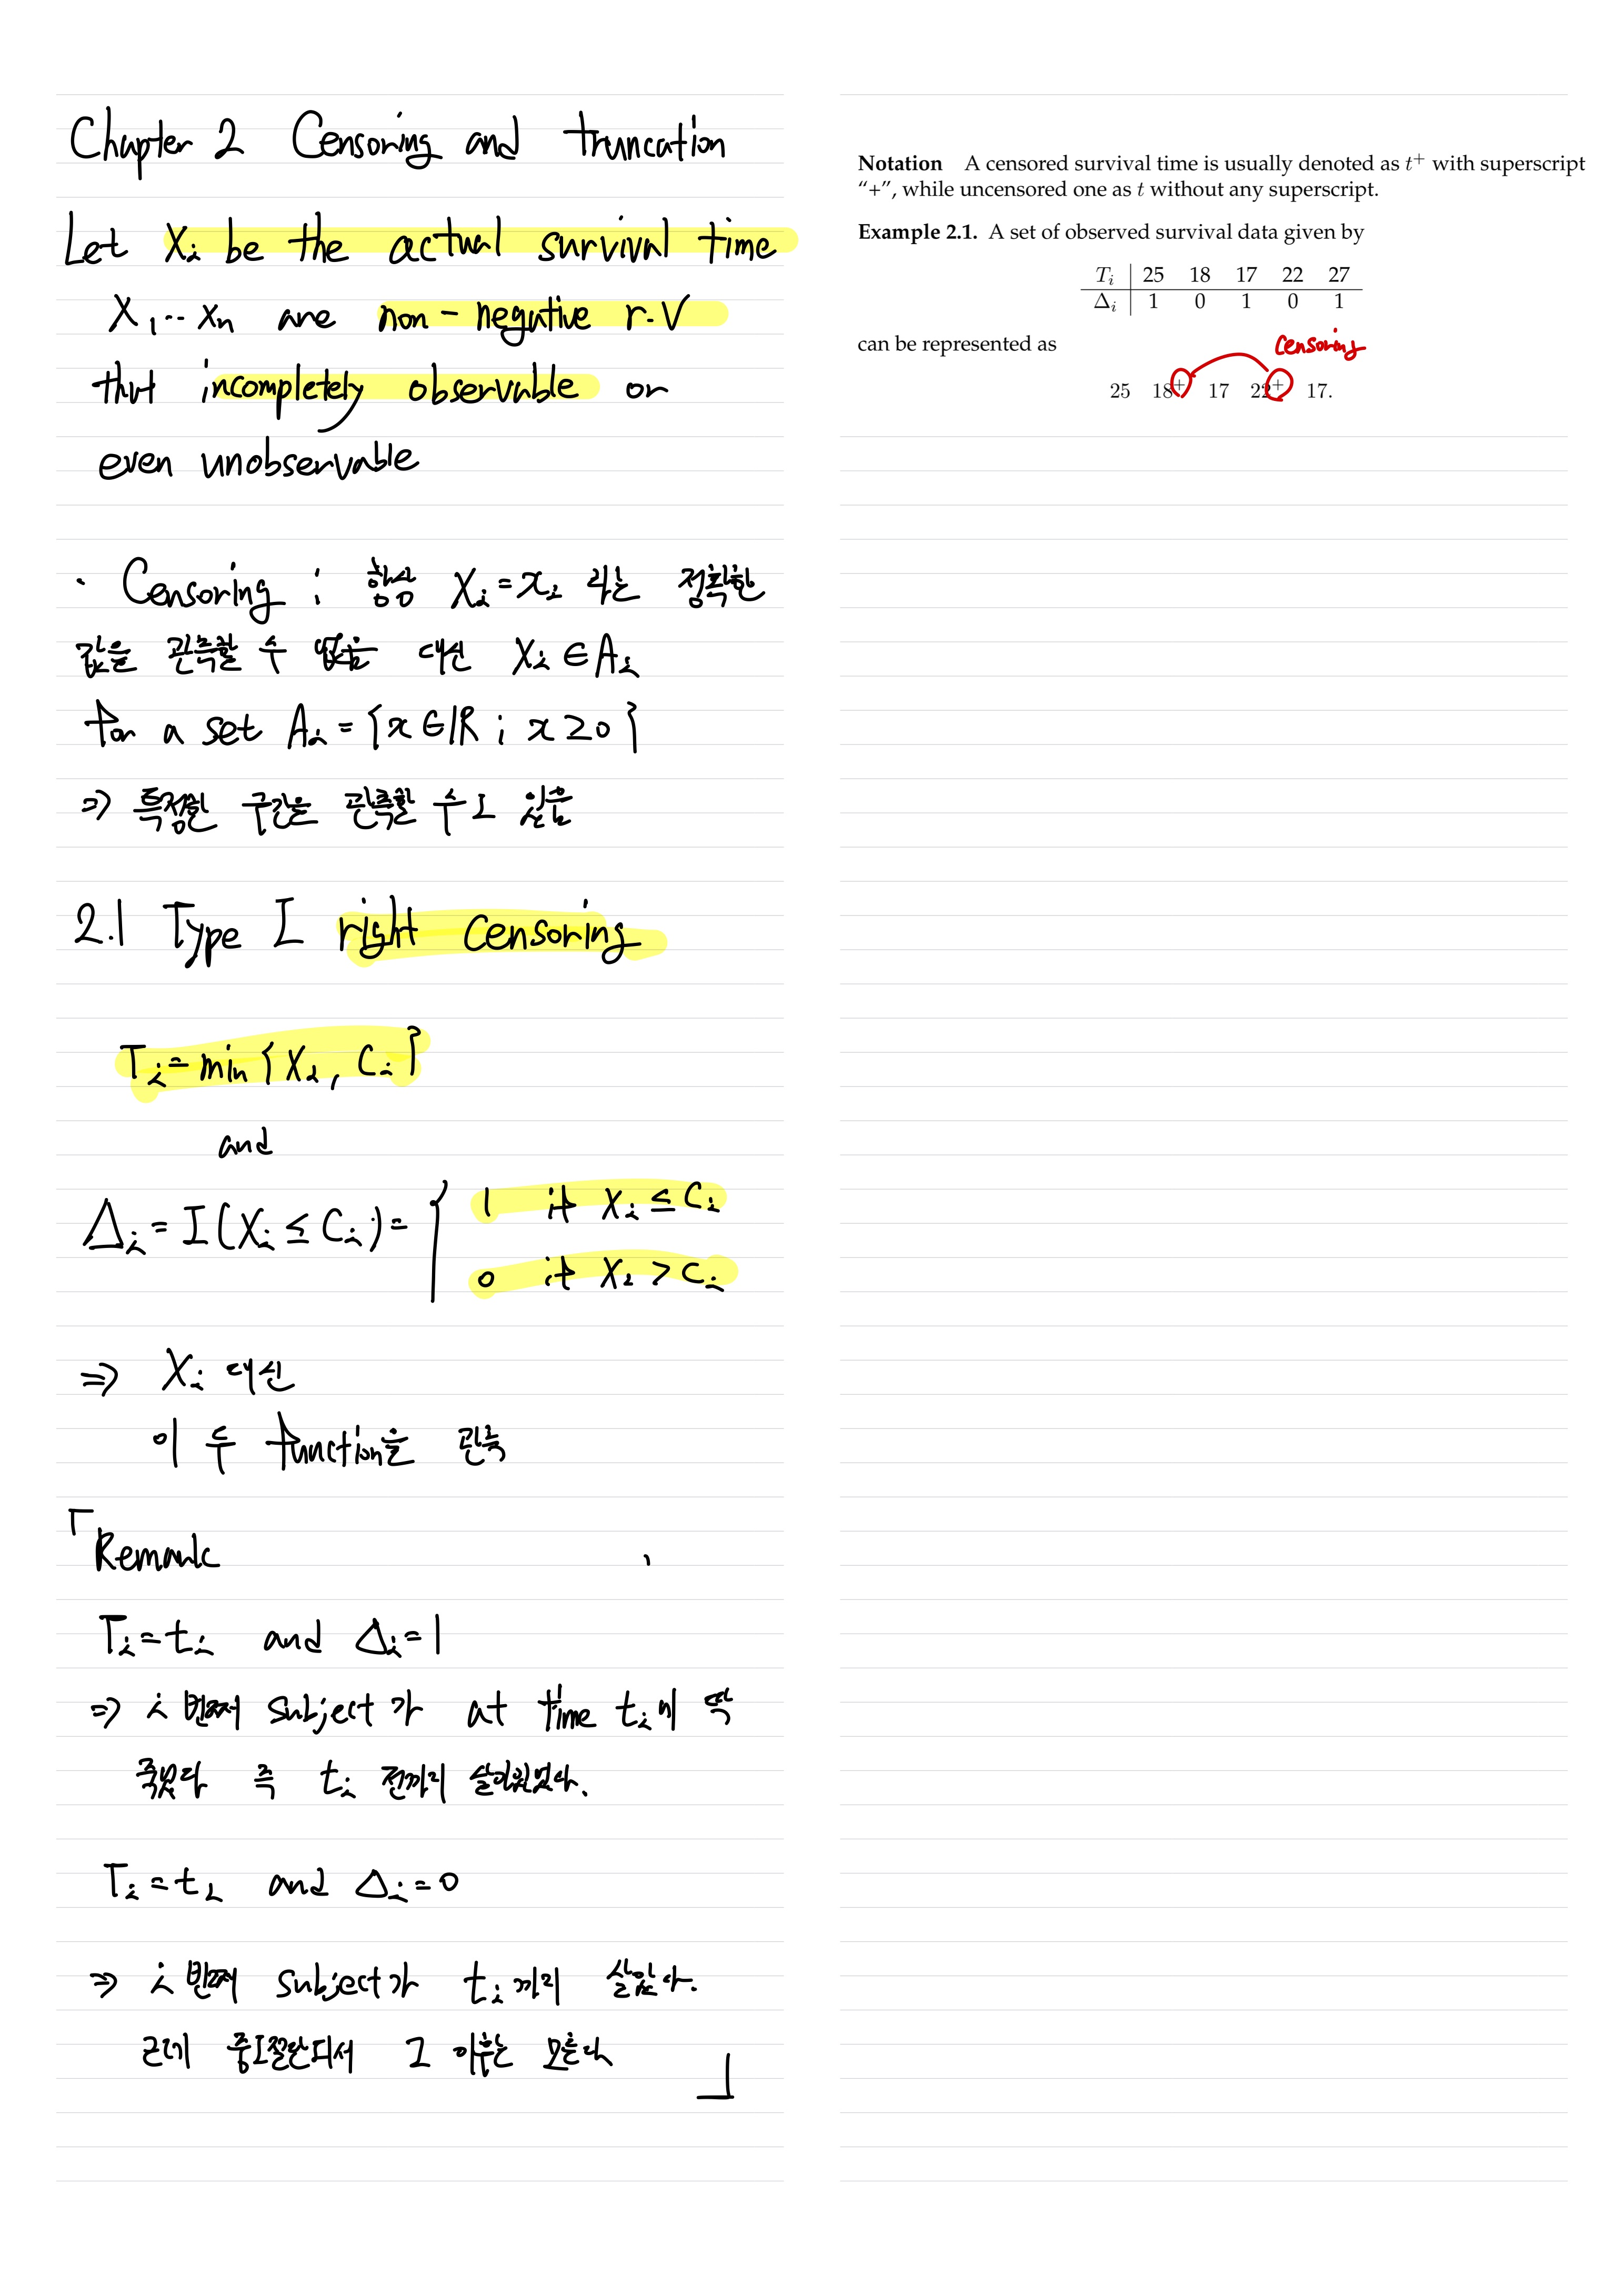 Chapter 2 Censoring and truncation
Let Xᵢ be the actual survival time
X₁ ‥ Xₙ are non-negative r.V
that incompletely observable or
even unobservable
· Censoring : 항상 Xᵢ = xᵢ 라는 정확한
값을 관측할 수 없음 대신 Xᵢ ∈ Aᵢ
for a set Aᵢ = {x ∈ ℝ ; x ≥ 0}
⇒ 특정한 구간을 관측할 수도 있음
2.1 Type I right censoring
Tᵢ = min {Xᵢ, Cᵢ}
and
Δᵢ = I(Xᵢ ≤ Cᵢ) = { 1 if Xᵢ ≤ Cᵢ
0 if Xᵢ > Cᵢ
⇒ Xᵢ 대신
이 두 function을 관측
「Remark
Tᵢ = tᵢ and Δᵢ = 1
⇒ i 번째 subject가 at time tᵢ에 딱
죽었다 즉 tᵢ 전까지 살아있었다.
Tᵢ = tᵢ and Δᵢ = 0
⇒ i 번째 subject가 tᵢ까지 살았다.
근데 중도절단되서 그 이후는 모른다 」
Notation A censored survival time is usually denoted as t⁺ with superscript
“+”, while uncensored one as t without any superscript.
Example 2.1. A set of observed survival data given by
Tᵢ 25 18 17 22 27
Δᵢ 1 0 1 0 1
can be represented as
censoring
25 18⁺ 17 22⁺ 17.